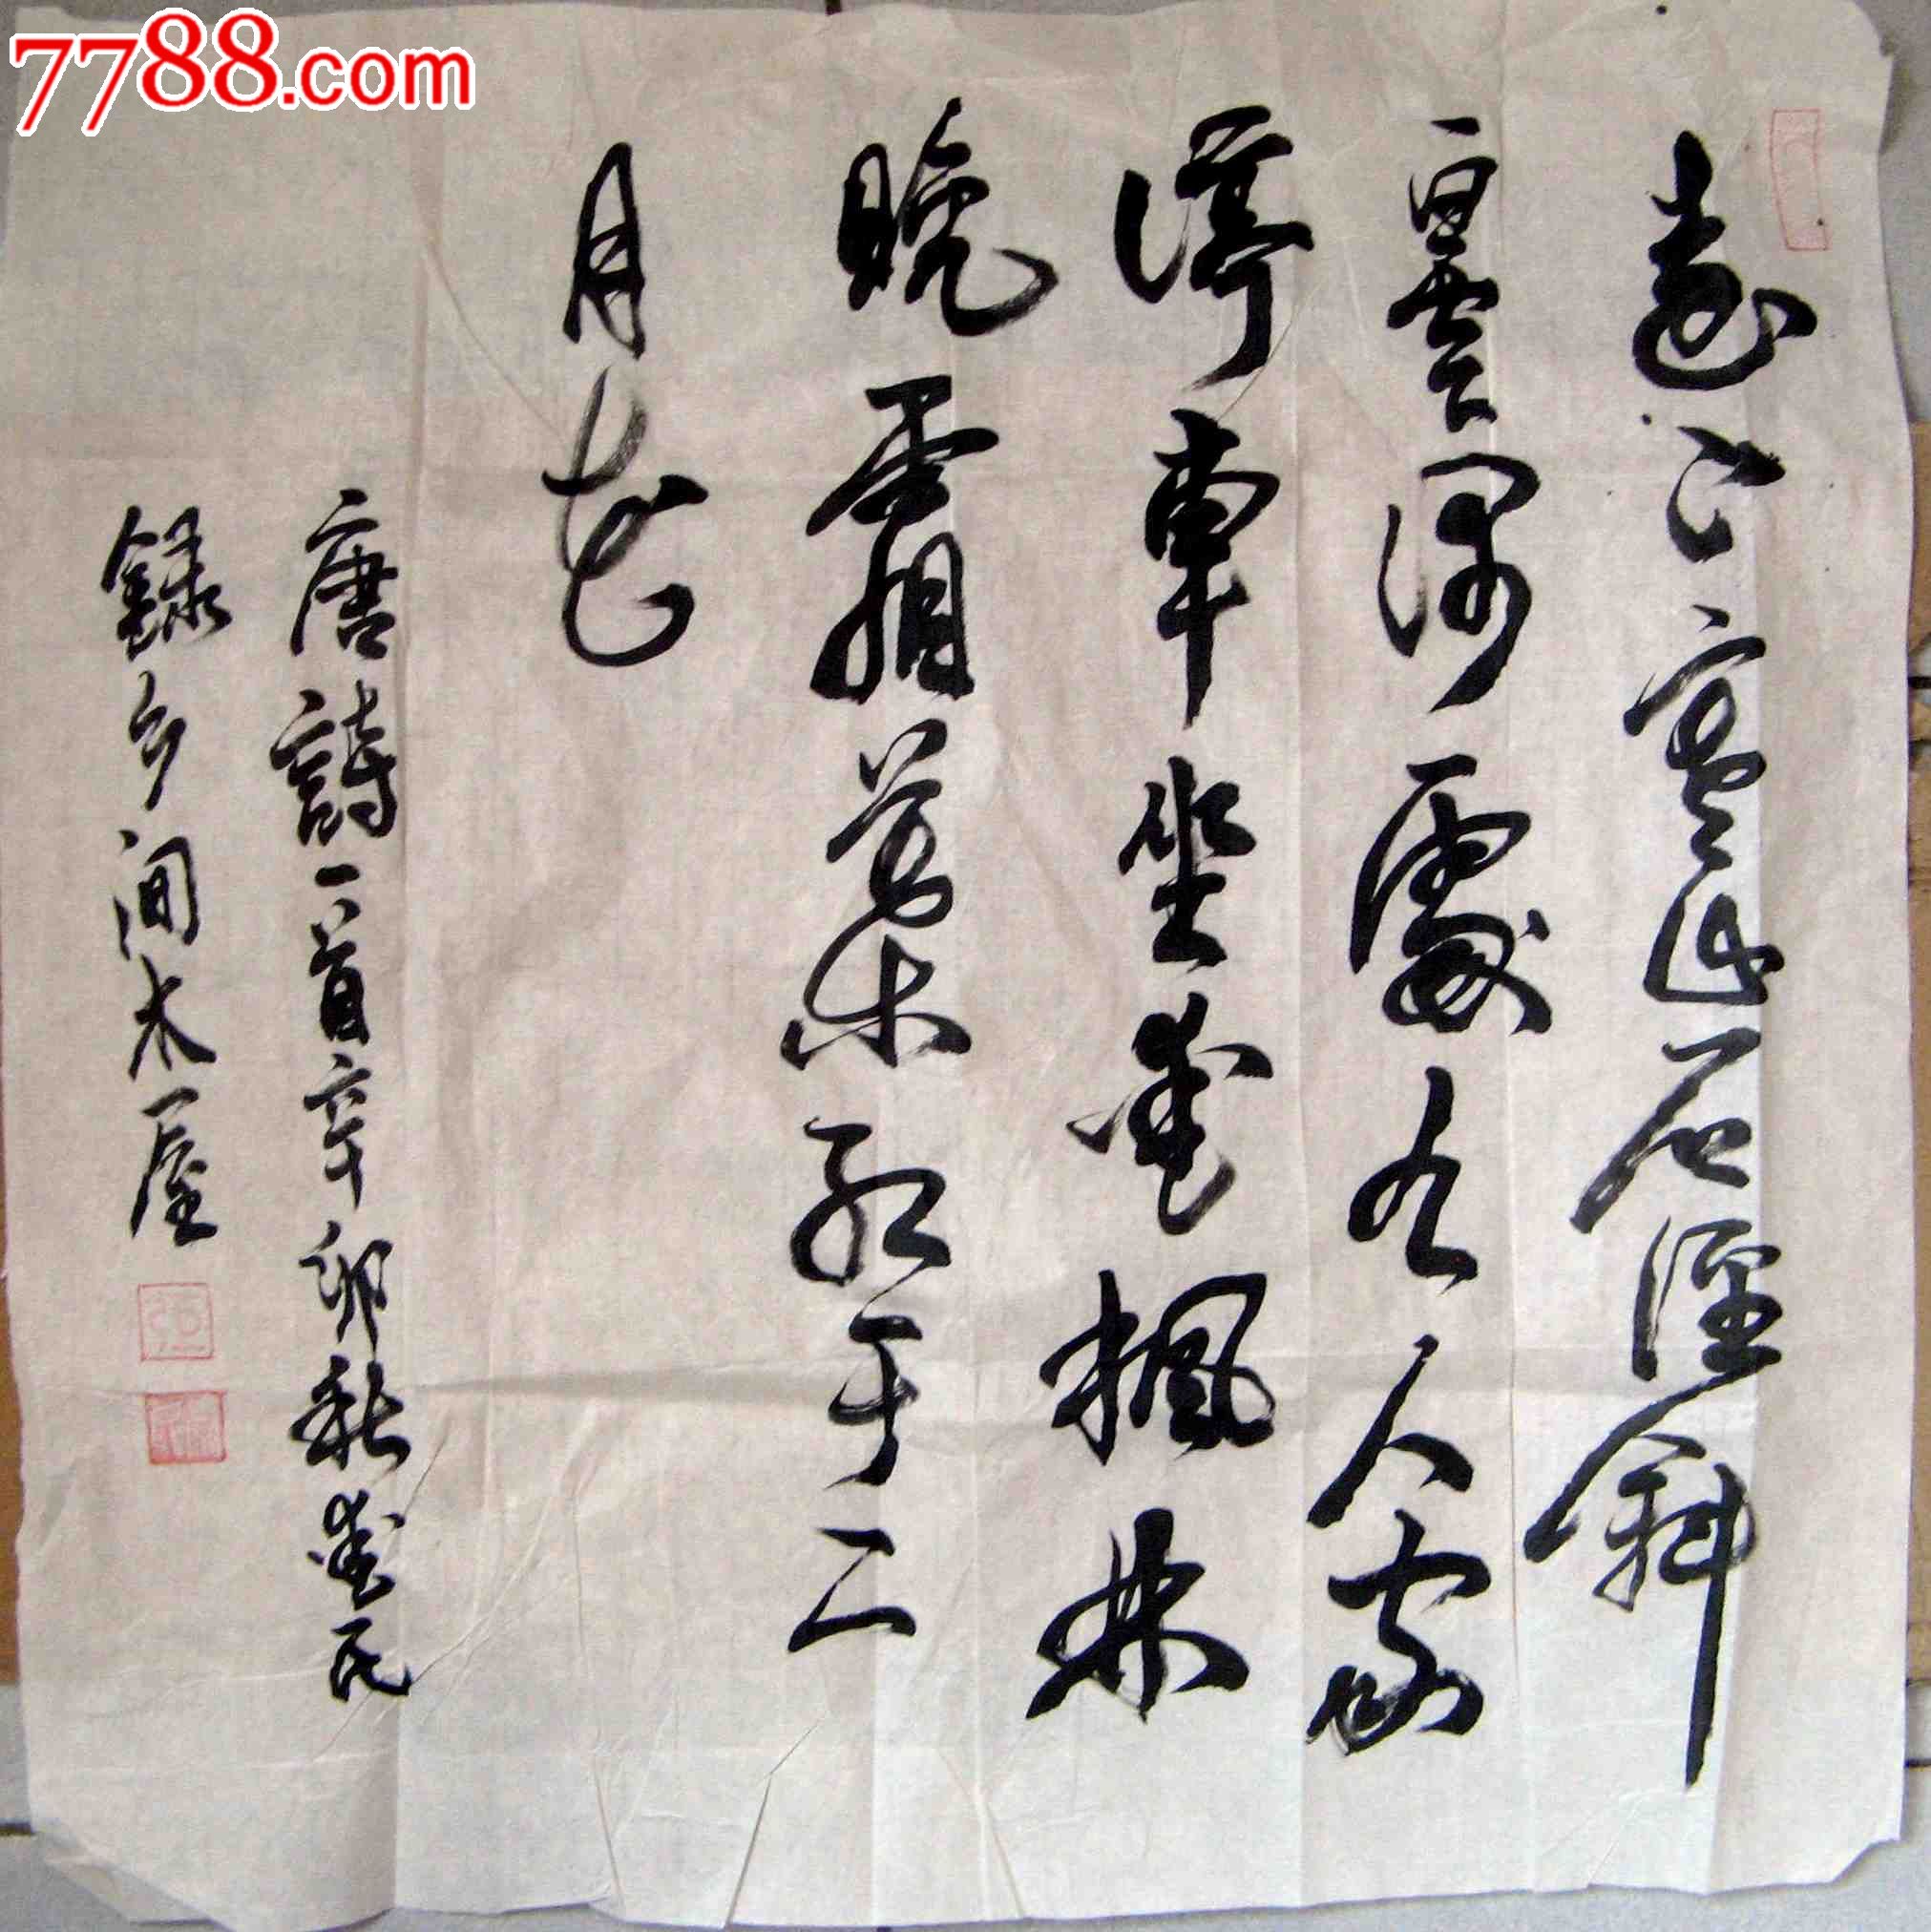 7788.com
遠上寒山石徑斜
白雲深處有人家
停車坐愛楓林
晚霜葉紅于二
月花
唐詩一首辛卯秋愛民
録乡间木屋